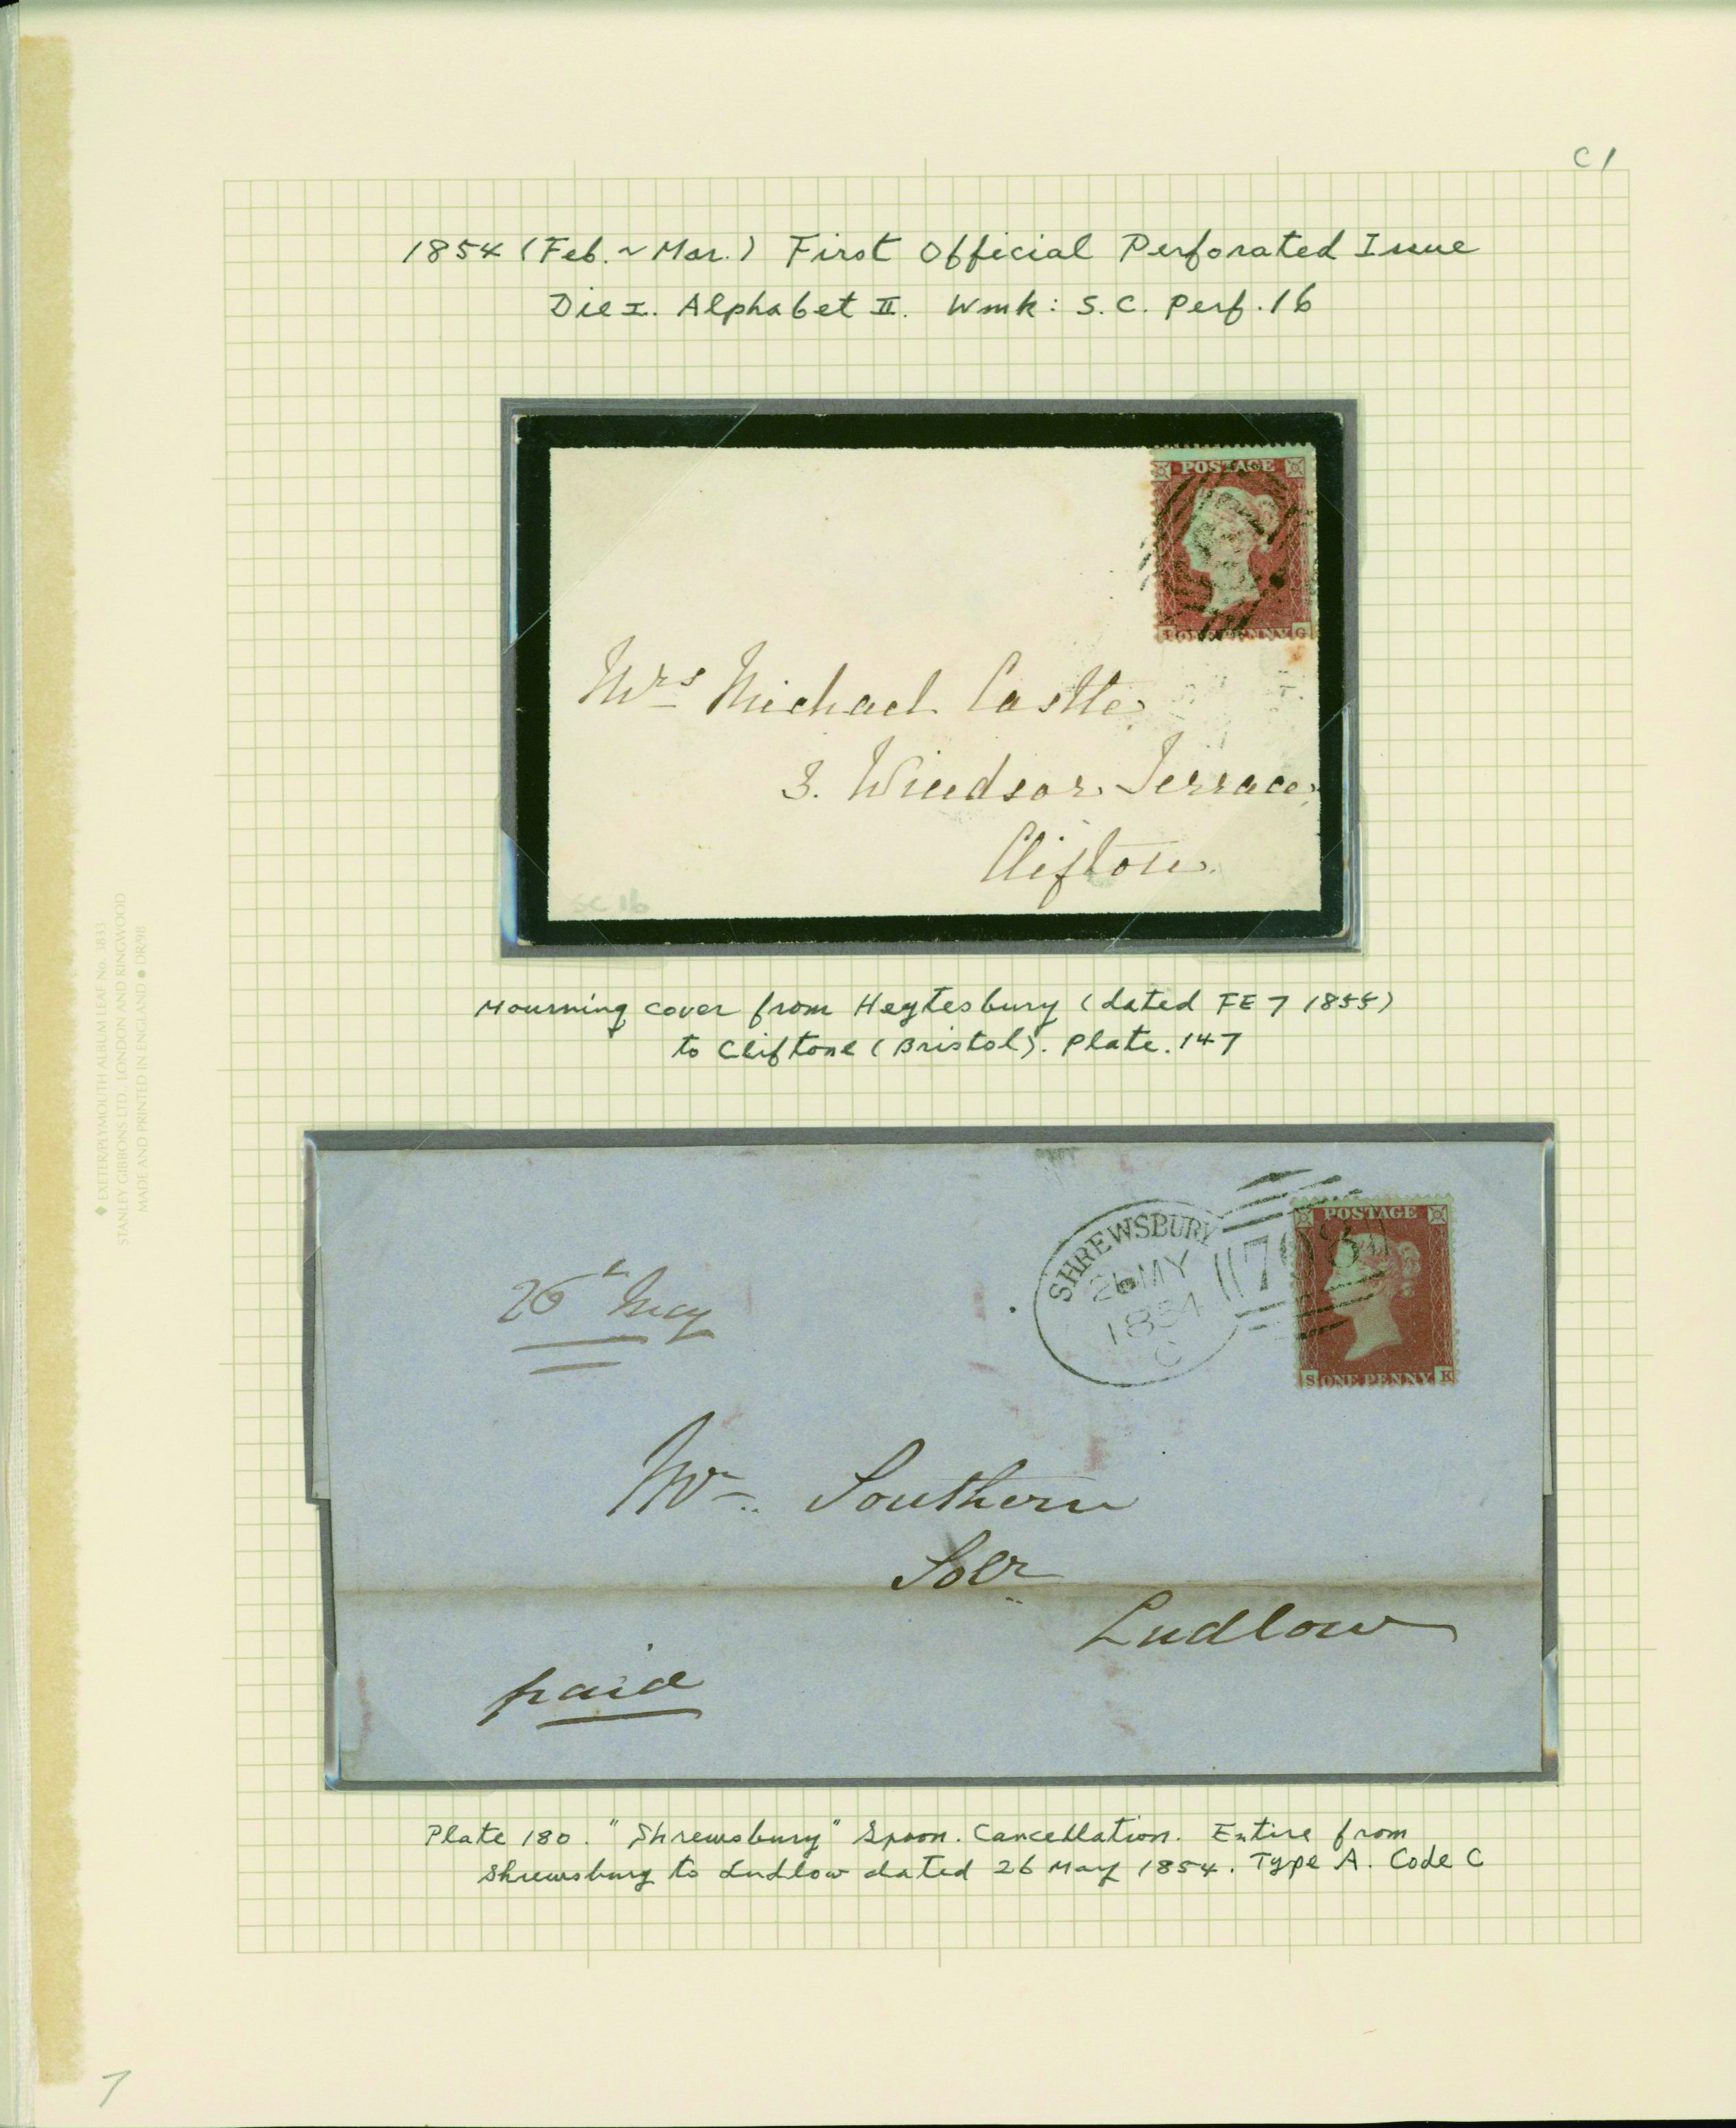 C 1
1854 (Feb. ~ Mar.) First Official Perforated Issue
Die I. Alphabet II. Wmk: S.C. Perf. 16
POSTAGE
ONE PENNY G
Mrs Michael Castle
3. Windsor Terrace
Clifton.
SC 16
Mourning cover from Heytesbury (dated FE 7 1855)
to Cliftone (Bristol). Plate. 147
SHREWSBURY
26 MY
1854
C
POSTAGE
S ONE PENNY K
26th May
Mr Southern
Solr
Ludlow
paid
Plate 180. "Shrewsbury" Spoon. Cancellation. Entire from
Shrewsbury to Ludlow dated 26 May 1854. Type A. Code C
◆ EXETER/PLYMOUTH ALBUM LEAF No. 3833
STANLEY GIBBONS LTD., LONDON AND RINGWOOD
MADE AND PRINTED IN ENGLAND ●
7